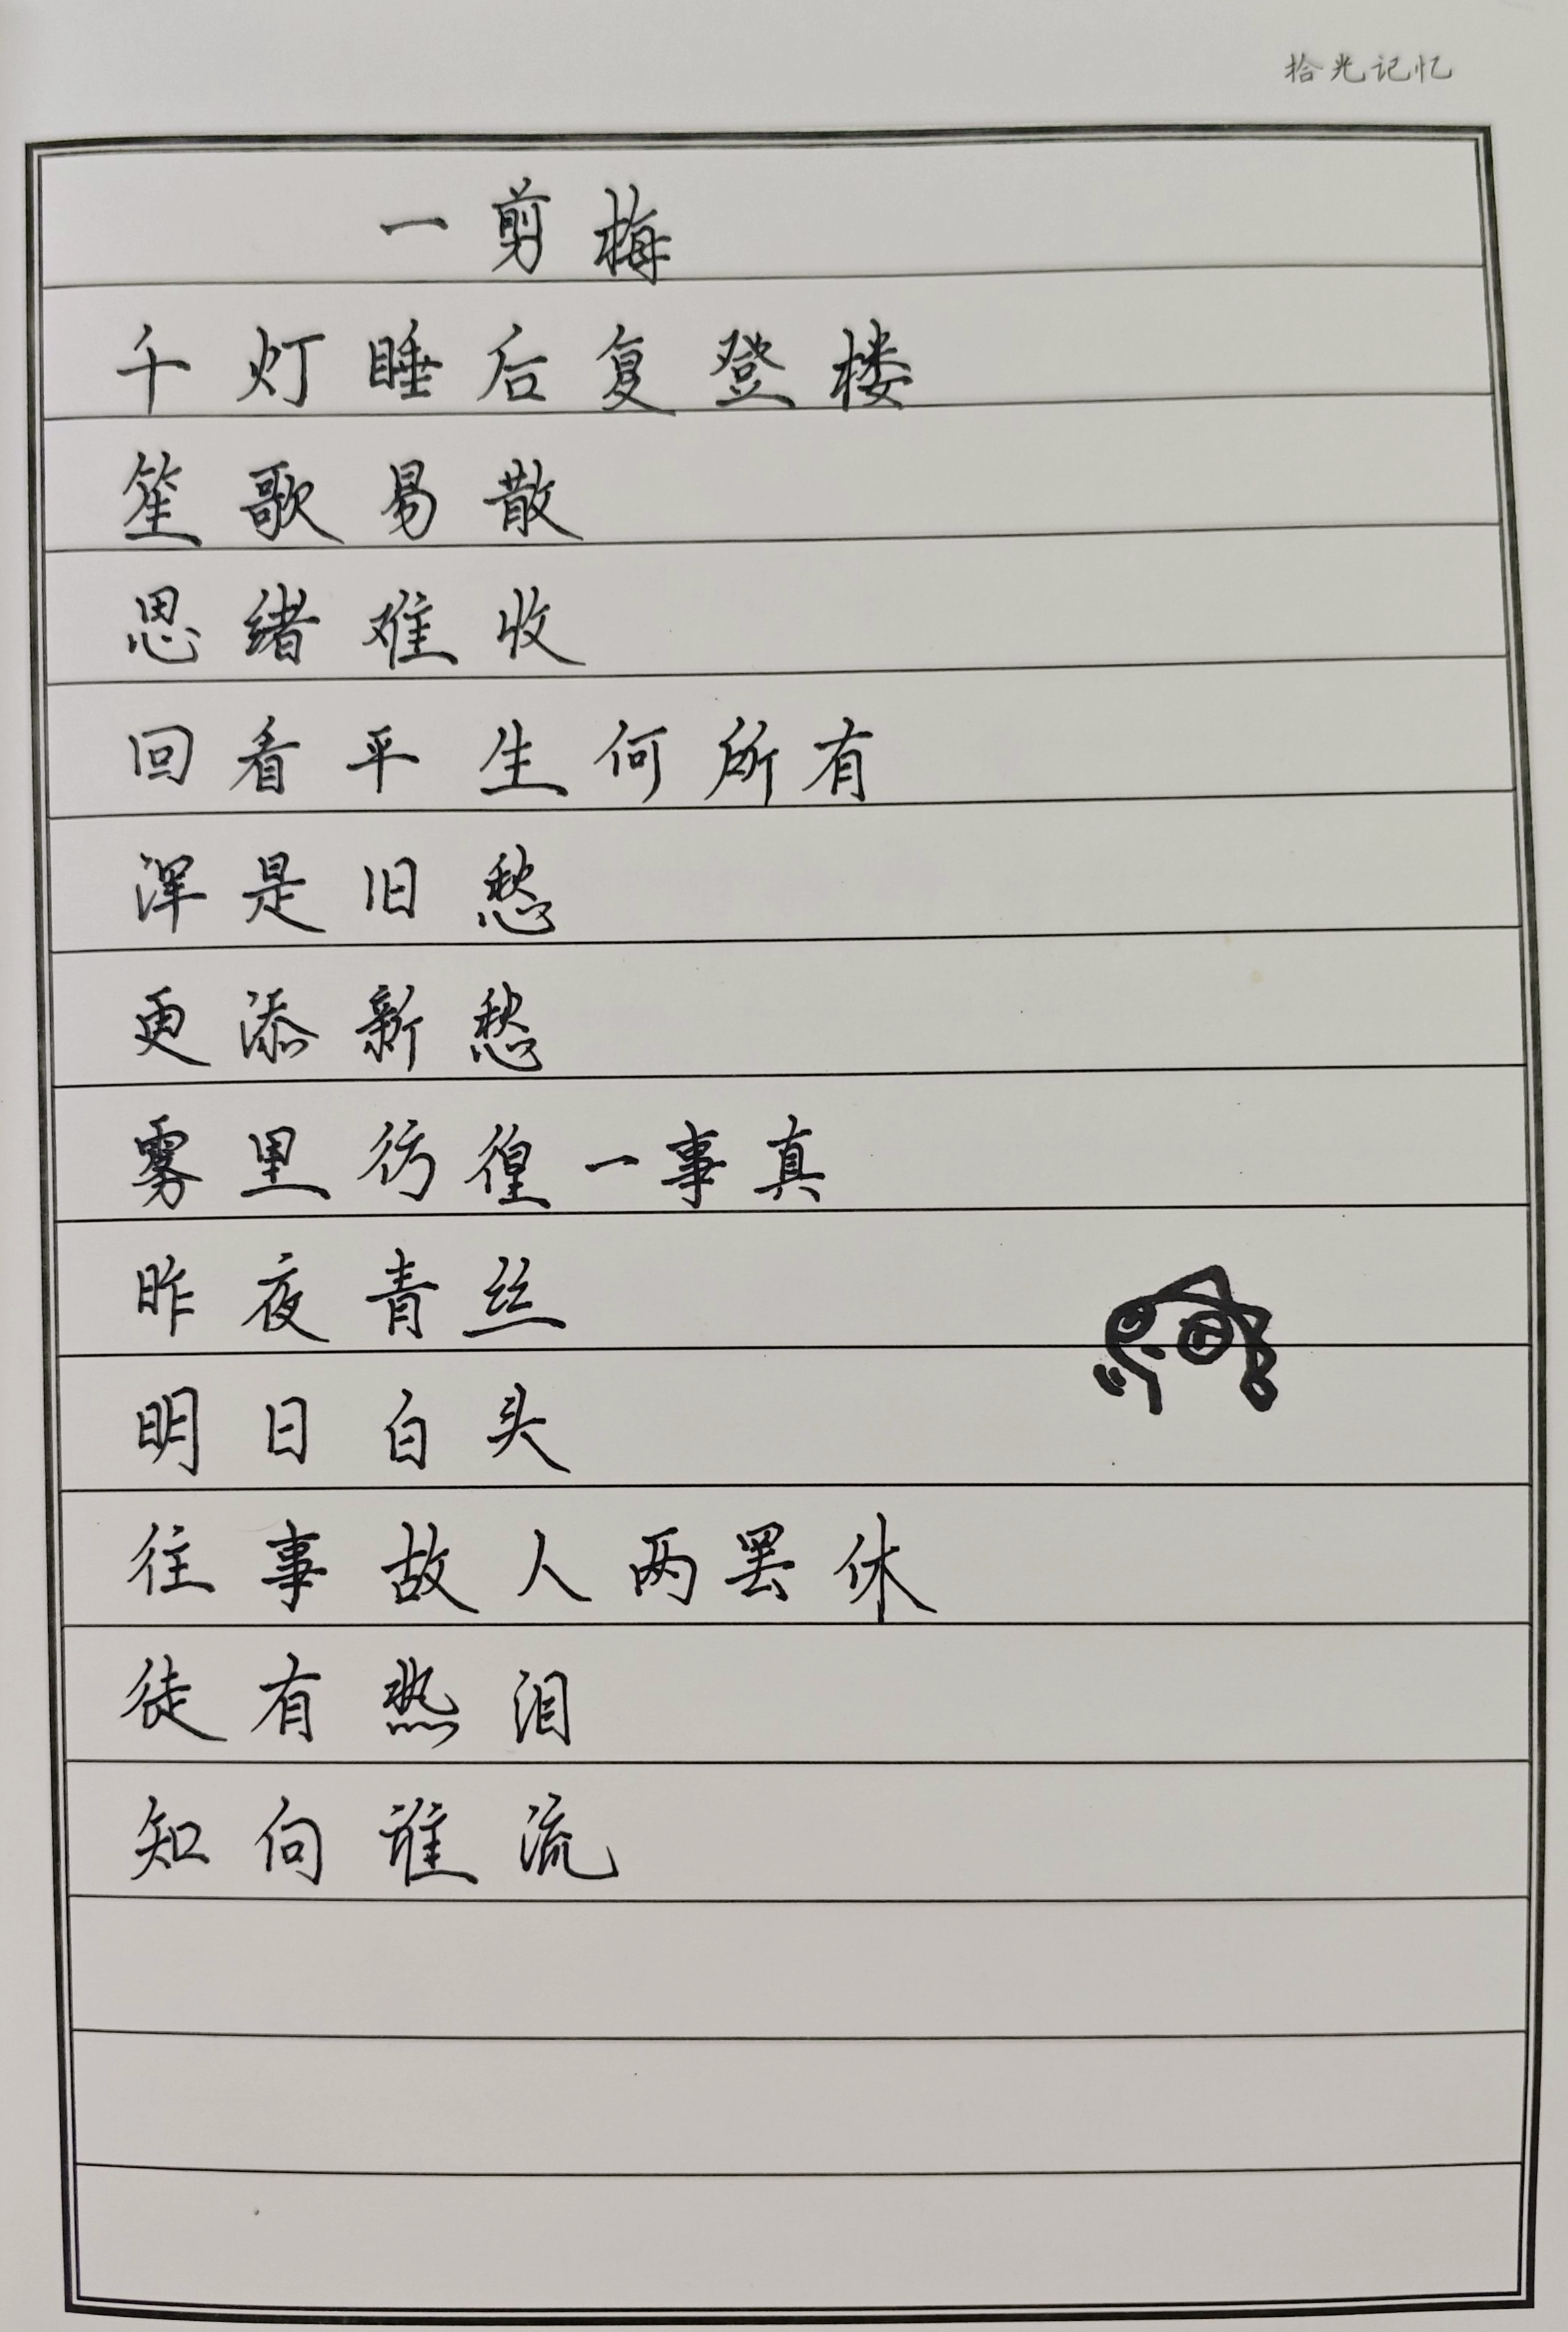 拾光记忆
一剪梅
千灯睡后复登楼
笙歌易散
思绪难收
回看平生何所有
浑是旧愁
更添新愁
雾里彷徨一事真
昨夜青丝
明日白头
往事故人两罢休
徒有热泪
知向谁流